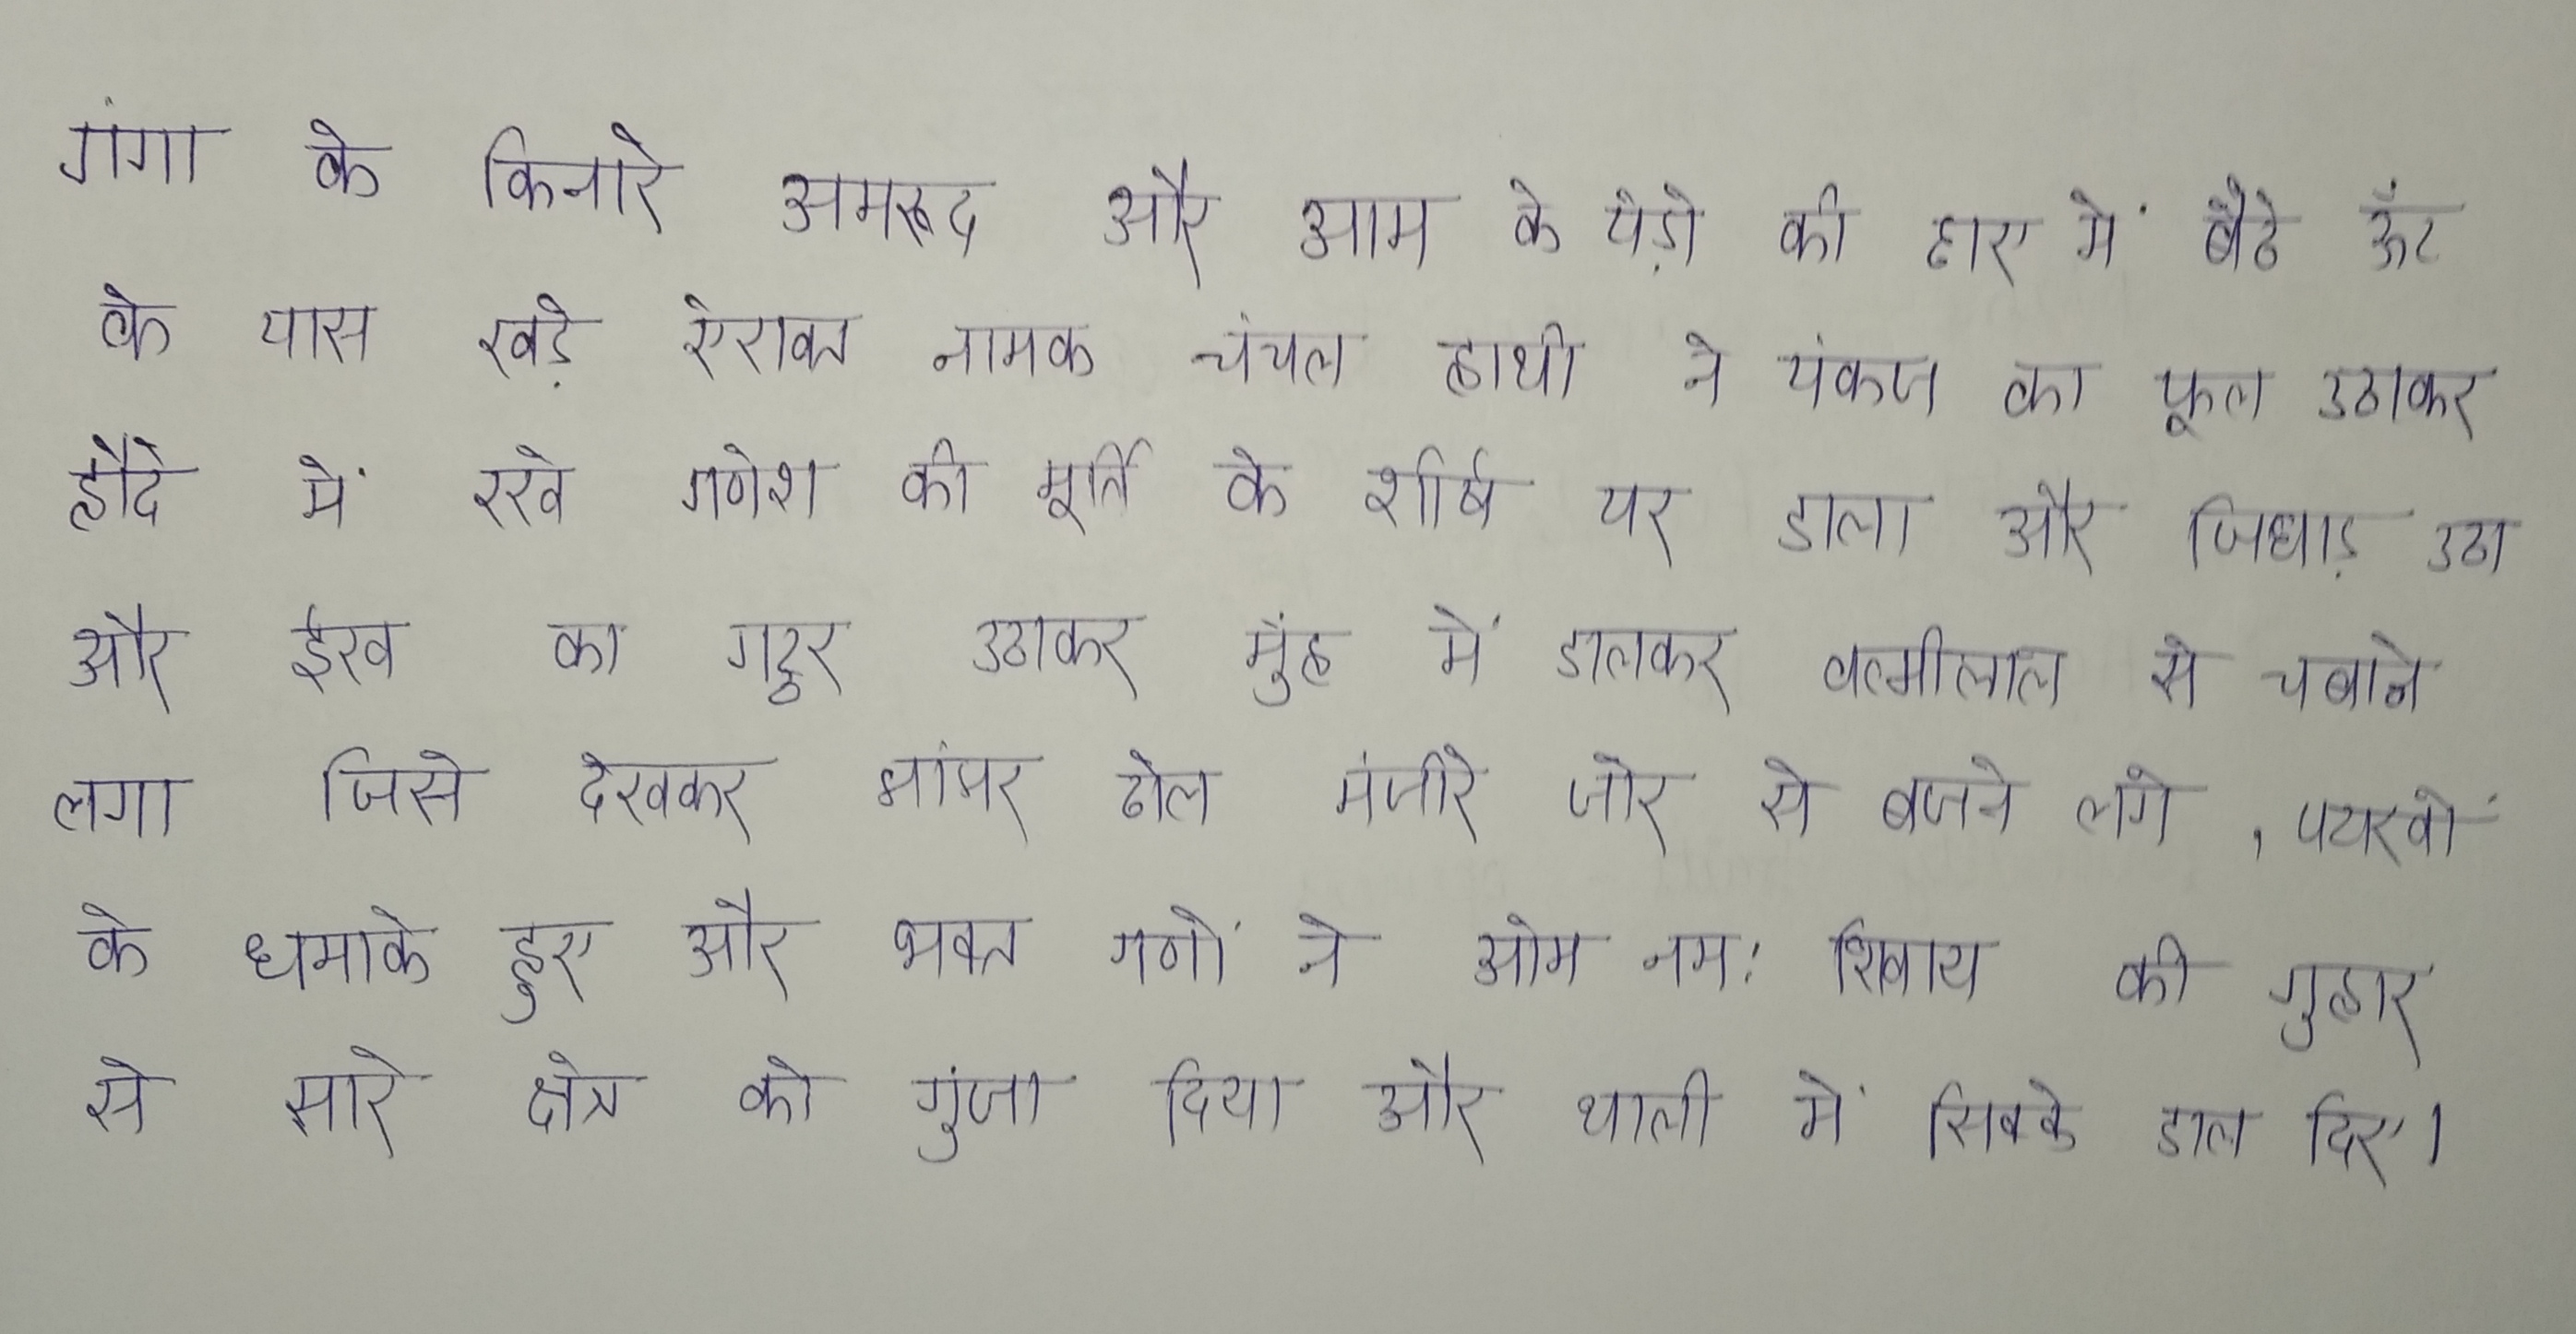 गंगा के किनारे अमरूद और आम के पेड़ो की में बैठे ऊँट
के पास खड़े ऐरावत नामक चंचल हाथी ने पंकज का फूल उठाकर
हौदे में रखे गणेश की मूर्ति के शीर्ष पर डाला और उठा
और ईख का गट्ठर उठाकर मुंह में डालकर से चबाने
लगा जिसे देखकर ढोल मंजीरे जोर से बजने लगे ,
के धमाके हुए और भक्त गणों ने ओम नमः शिवाय की गुहार
से सारे क्षेत्र को गुंजा दिया और थाली में सिक्के डाल दिए।